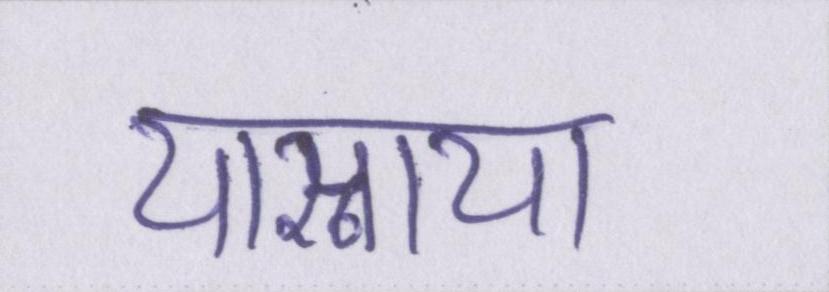 यास्नाया